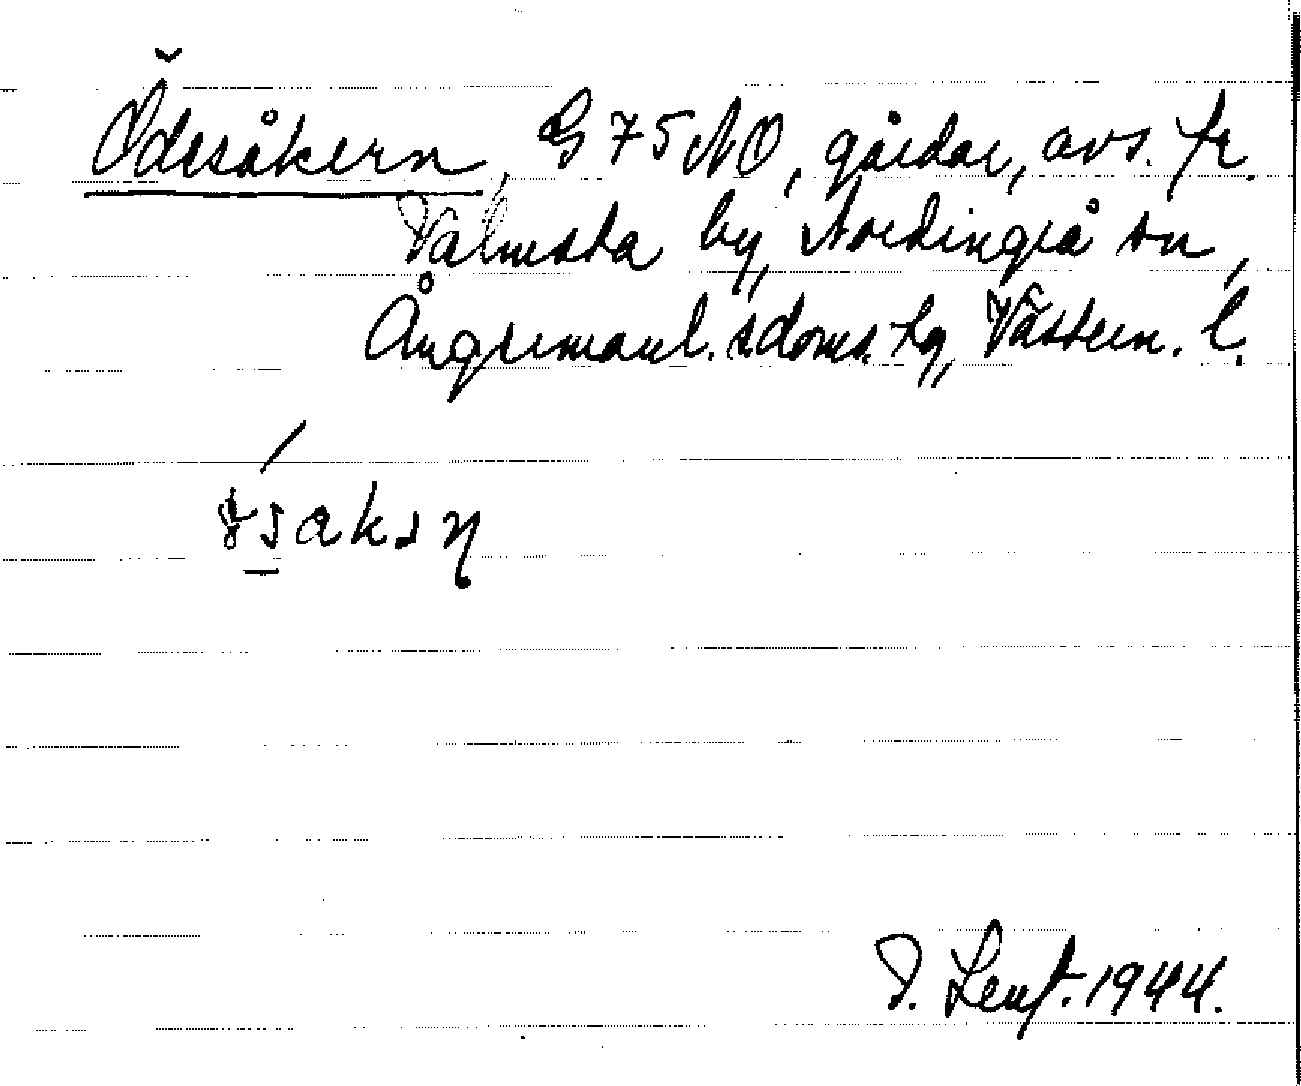 Ödesåkern, G 75 NO, gårdar, avs. fr.
Valmsta by, Nordingrå sn,
Ångermanl. s. doms. hg, Västern. l.
D. Lenf. 1944.